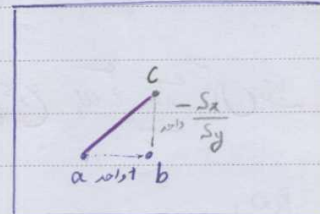 C
واحد
- Sx
Sy
a 1 واحد b